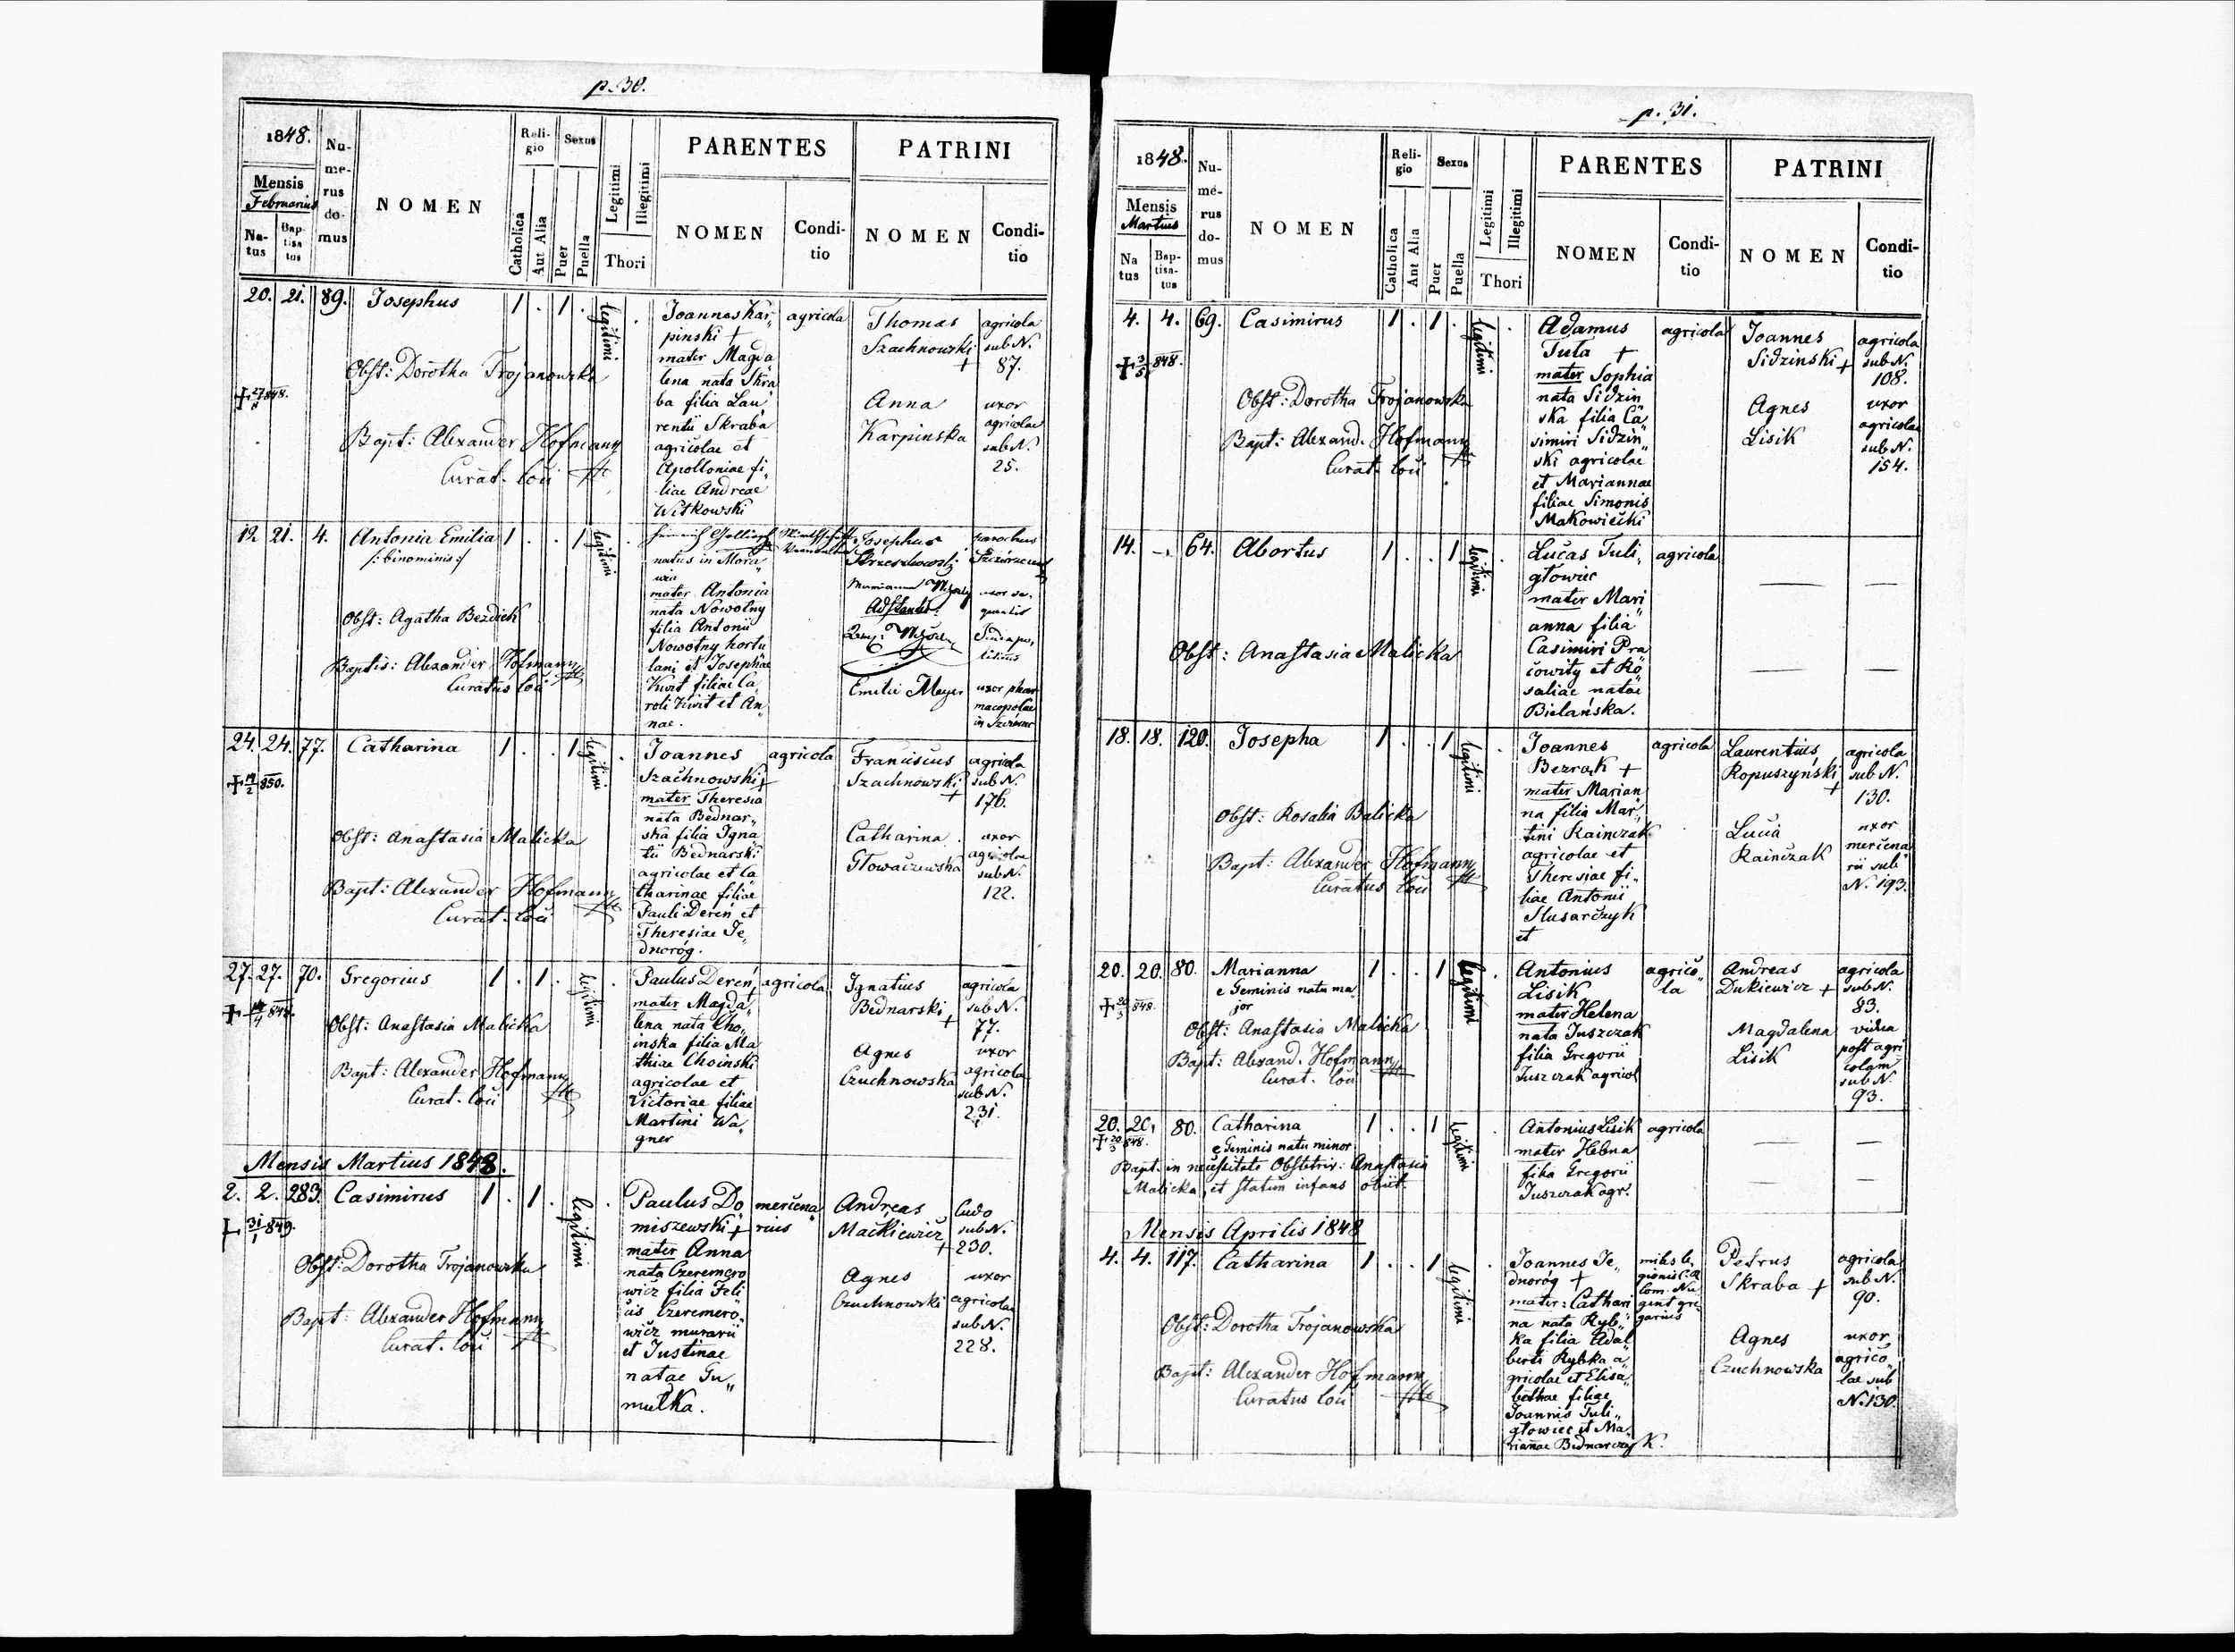 p. 30.
1848.
Mensis
Februarius
Na-
tus
Bap-
tisa
tus
Nu-
me-
rus
do-
mus
NOMEN
Reli-
gio
Catholica
Aut Alia
Sexus
Puer
Puella
Legitimi
Illegitimi
Thori
PARENTES
NOMEN
Condi-
tio
PATRINI
NOMEN
Condi-
tio
20. 21. 89. Josephus 1 . 1 . legitimi .
Obst: Dorotha Trojanowska
Bapt: Alexander Hofmann
Curat. loci
Joannes Kar„
pinski +
mater Magda
lena nata Skra
ba filia Lau
rentii Skraba
agricolae et
Apolloniae fi„
liae Andreae
Witkowski
agricola
Thomas
Szachnowski
+
Anna
Karpinska
agricola
sub N.
87.
uxor
agricolae
sub N.
25.
12 21. 4. Antonia Emilia 1 . . 1 legitimi .
/: binominis :/
Obst: Agatha Bezdiek
Baptis: Alexander Hofmann
Curatus loci
natus in Mora„
via
mater Antonia
nata Nowotny
filia Antonii
Nowotny hortu
lani et Josephae
Kwit filiae Ca„
roli Kwit et An„
nae.
Josephus
Adstantes:
Emilie Meyer
parochus
uxor phar
macopolae
24. 24. 77. Catharina 1 . . 1 legitimi .
+ 19/2 850.
Obst: Anastasia Malicka
Bapt: Alexander Hofmann
Curat. loci
Joannes
Szachnowski +
mater Theresia
nata Bednar„
ska filia Igna
tii Bednarski
agricolae et Ca
tharinae filiae
Pauli Dereń et
Theresiae Je„
dnoróg.
agricola
Franciscus
Szachnowski
+
Catharina
Głowaczewska
agricola
sub N.
176.
uxor
agricolae
sub N.
122.
27. 27. 70. Gregorius 1 . 1 . legitimi .
Obst: Anastasia Malicka
Bapt: Alexander Hofmann
Curat. loci
Paulus Dereń,
mater Magda„
lena nata Cho„
inska filia Ma
thiae Choinski
agricolae et
Victoriae filiae
Martini Wa„
gner
agricola
Ignatius
Bednarski
+
Agnes
Czuchnowska
agricola
sub N.
77.
uxor
agricolae
sub N.
231.
Mensis Martius 1848.
2. 2. 283. Casimirus 1 . 1 . legitimi .
+ 31/1 849.
Obst: Dorotha Trojanowska
Bapt: Alexander Hofmann
Curat. loci
Paulus Do„
miszewski +
mater Anna
nata Czeremero
wicz filia Feli
cis Czeremero„
wicz murarii
et Justinae
natae Gu„
mulka.
mercena„
rius
Andreas
Mackiewicz
+
Agnes
Czuchnowski
Cudo
sub N.
230.
uxor
agricolae
sub N.
228.
p. 31.
1848.
Mensis
Martius
Na
tus
Bap-
tisa-
tus
Nu-
me-
rus
do-
mus
NOMEN
Reli-
gio
Catholica
Ant Alia
Sexus
Puer
Puella
Legitimi
Illegitimi
Thori
PARENTES
NOMEN
Condi-
tio
PATRINI
NOMEN
Condi-
tio
4. 4. 69. Casimirus 1 . 1 . legitimi .
+ 3/5 848.
Obst: Dorotha Trojanowska
Bapt: Alexand. Hofmann
Curat. loci
Adamus
Tuta +
mater Sophia
nata Sidzin
ska filia Ca„
simiri Sidzin„
ski agricolae
et Mariannae
filiae Simonis
Makowiecki
agricola
Joannes
Sidzinski +
Agnes
Lisik
agricola
sub N.
108.
uxor
agricolae
sub N.
154.
14. - 64. Abortus 1 . . 1 legitimi .
Obst: Anastasia Malicka
Lucas Tuli„
głowiec
mater Mari„
anna filia
Casimiri Pra
cowity et Ro„
saliae natae
Bielańska.
agricola
18. 18. 120. Josepha 1 . . 1 legitimi .
Obst: Rosalia Balicka
Bapt: Alexander Hofmann
Curatus loci
Joannes
Bezrak +
mater Marian
na filia Mar„
tini Rainczak
agricolae et
Theresiae fi„
liae Antonii
Slusarczyk
et
agricola
Laurentius
Ropuszyński
+
Lucia
Rainczak
agricola
sub N.
130.
uxor
mercena„
rii sub
N. 193.
20. 20. 80. Marianna 1 . . 1 legitimi .
+ 20/3 848.
e Geminis natu ma„
jor
Obst: Anastasia Malicka
Bapt: Alexand. Hofmann
Curat. loci
Antonius
Lisik
mater Helena
nata Juszczak
filia Gregorii
Juszczak agricol
agrico„
la
Andreas
Dukiewicz +
Magdalena
Lisik
agricola
sub N.
83.
vidua
post agri
colam
sub N.
93.
20. 20. 80. Catharina 1 . . 1 legitimi .
+ 20/3 848.
e Geminis natu minor
Bapt. in necessitate Obstetrix: Anastasia
Malicka, et statim infans obiit.
Antonius Lisik
mater Helena
filia Gregorii
Juszczak agr.
agricola
Mensis Aprilis 1848
4. 4. 117. Catharina 1 . . 1 legitimi .
Obst: Dorotha Trojanowska
Bapt: Alexander Hofmann
Curatus loci
Joannes Je„
dnoróg +
mater: Cathari
na nata Ryb„
ka filia Adal
berti Rybka a„
gricolae et Elisa„
bethae filiae
Joannis Tuli„
głowiec et Ma„
riannae Bednarczyk.
miles le„
gionis
Petrus
Skraba +
Agnes
Czuchnowska
agricola
sub N.
90.
uxor
agrico„
lae sub
N. 130.